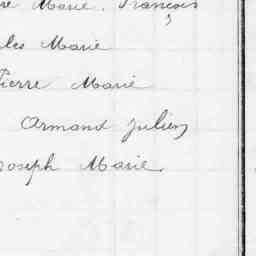 re Marie. François
ules Marie
Pierre Marie
Armand Julien
Joseph Marie.